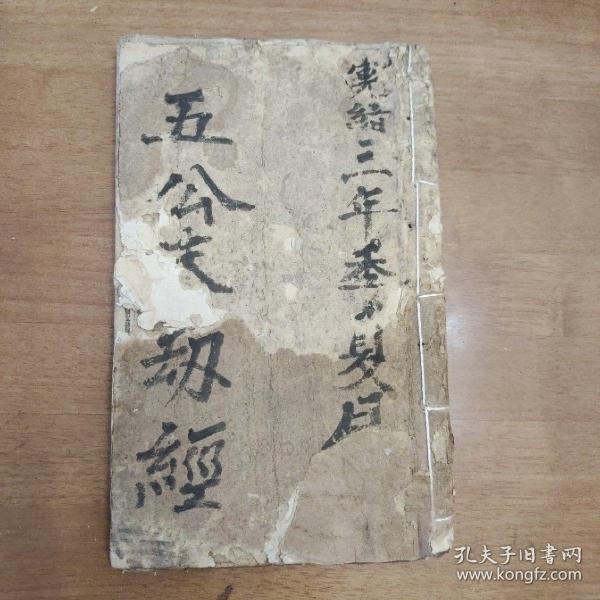 三年季夏日
五公 劫經
孔夫子旧书网
www.kongfz.com